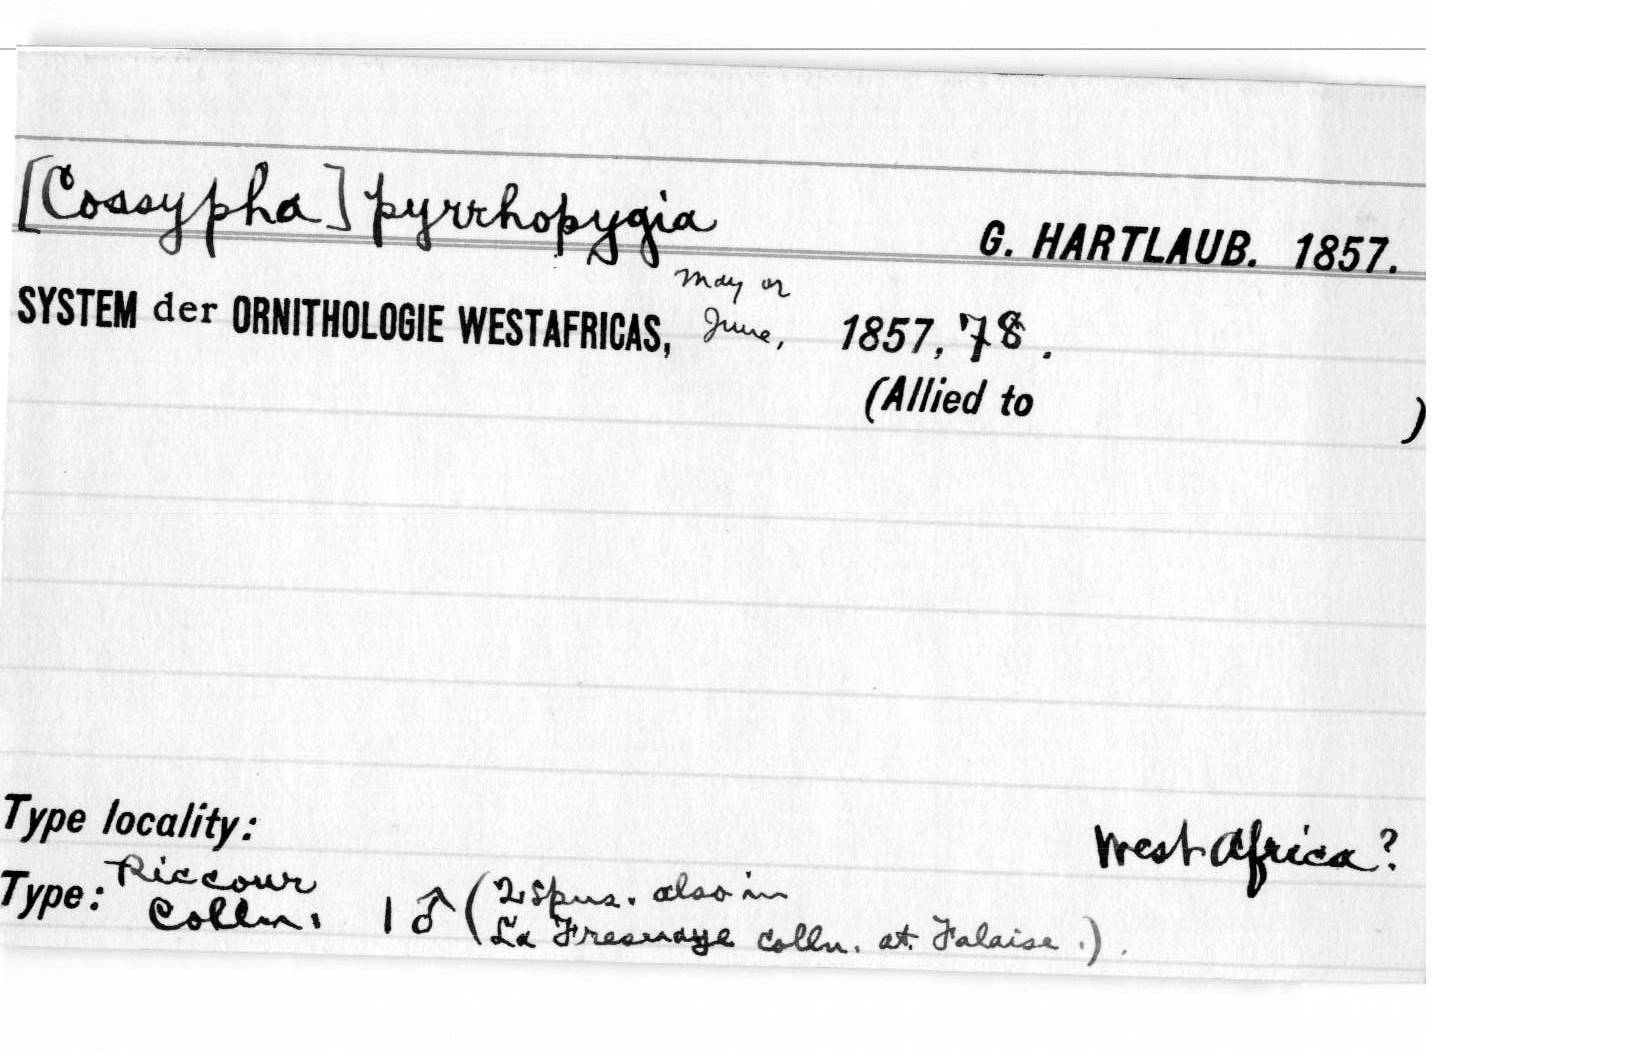 [Cossypha] pyrrhopygia
G. HARTLAUB. 1857.
May or
SYSTEM der ORNITHOLOGIE WESTAFRICAS, June, 1857, 78.
(Allied to )
Type locality: West Africa?
Type: Riccour
Colln. 1 ♂ (2 spns. also in
La Fresnaye colln. at Falaise.).